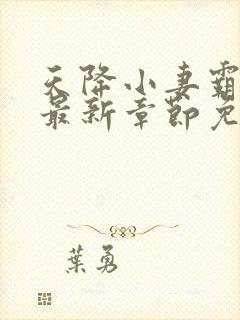 天降小妻霸
最新章節免
葉勇